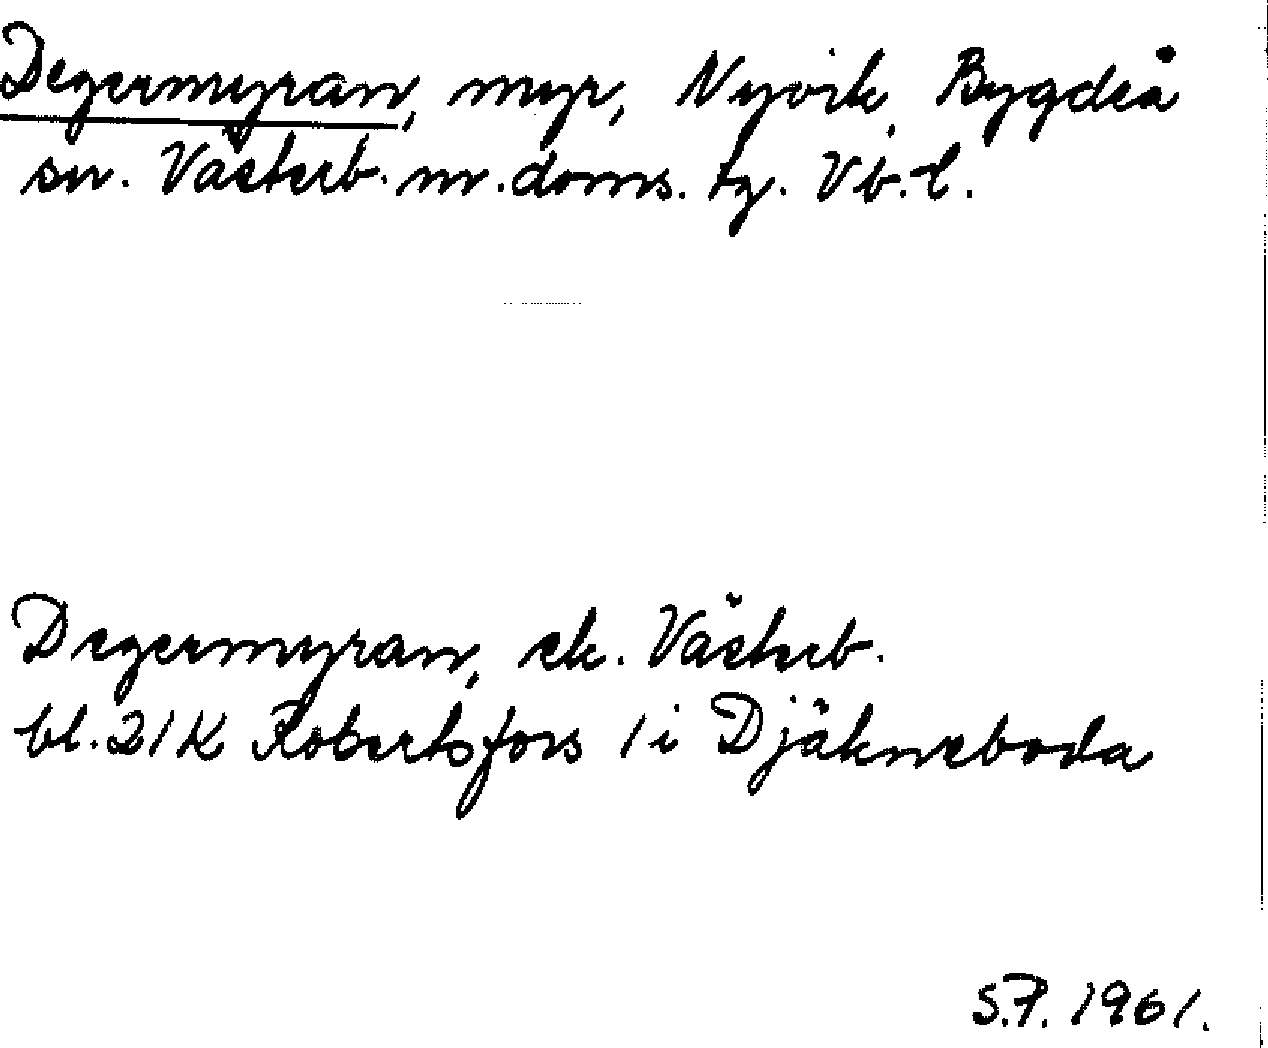 Degermyran, myr, Nyvik, Bygdeå
sn. Västerb. n. doms. tg. Vb. l.
Degermyran, ek. Västerb.
bl. 21K Robertsfors / i Djäkneboda
S.P. 1961.